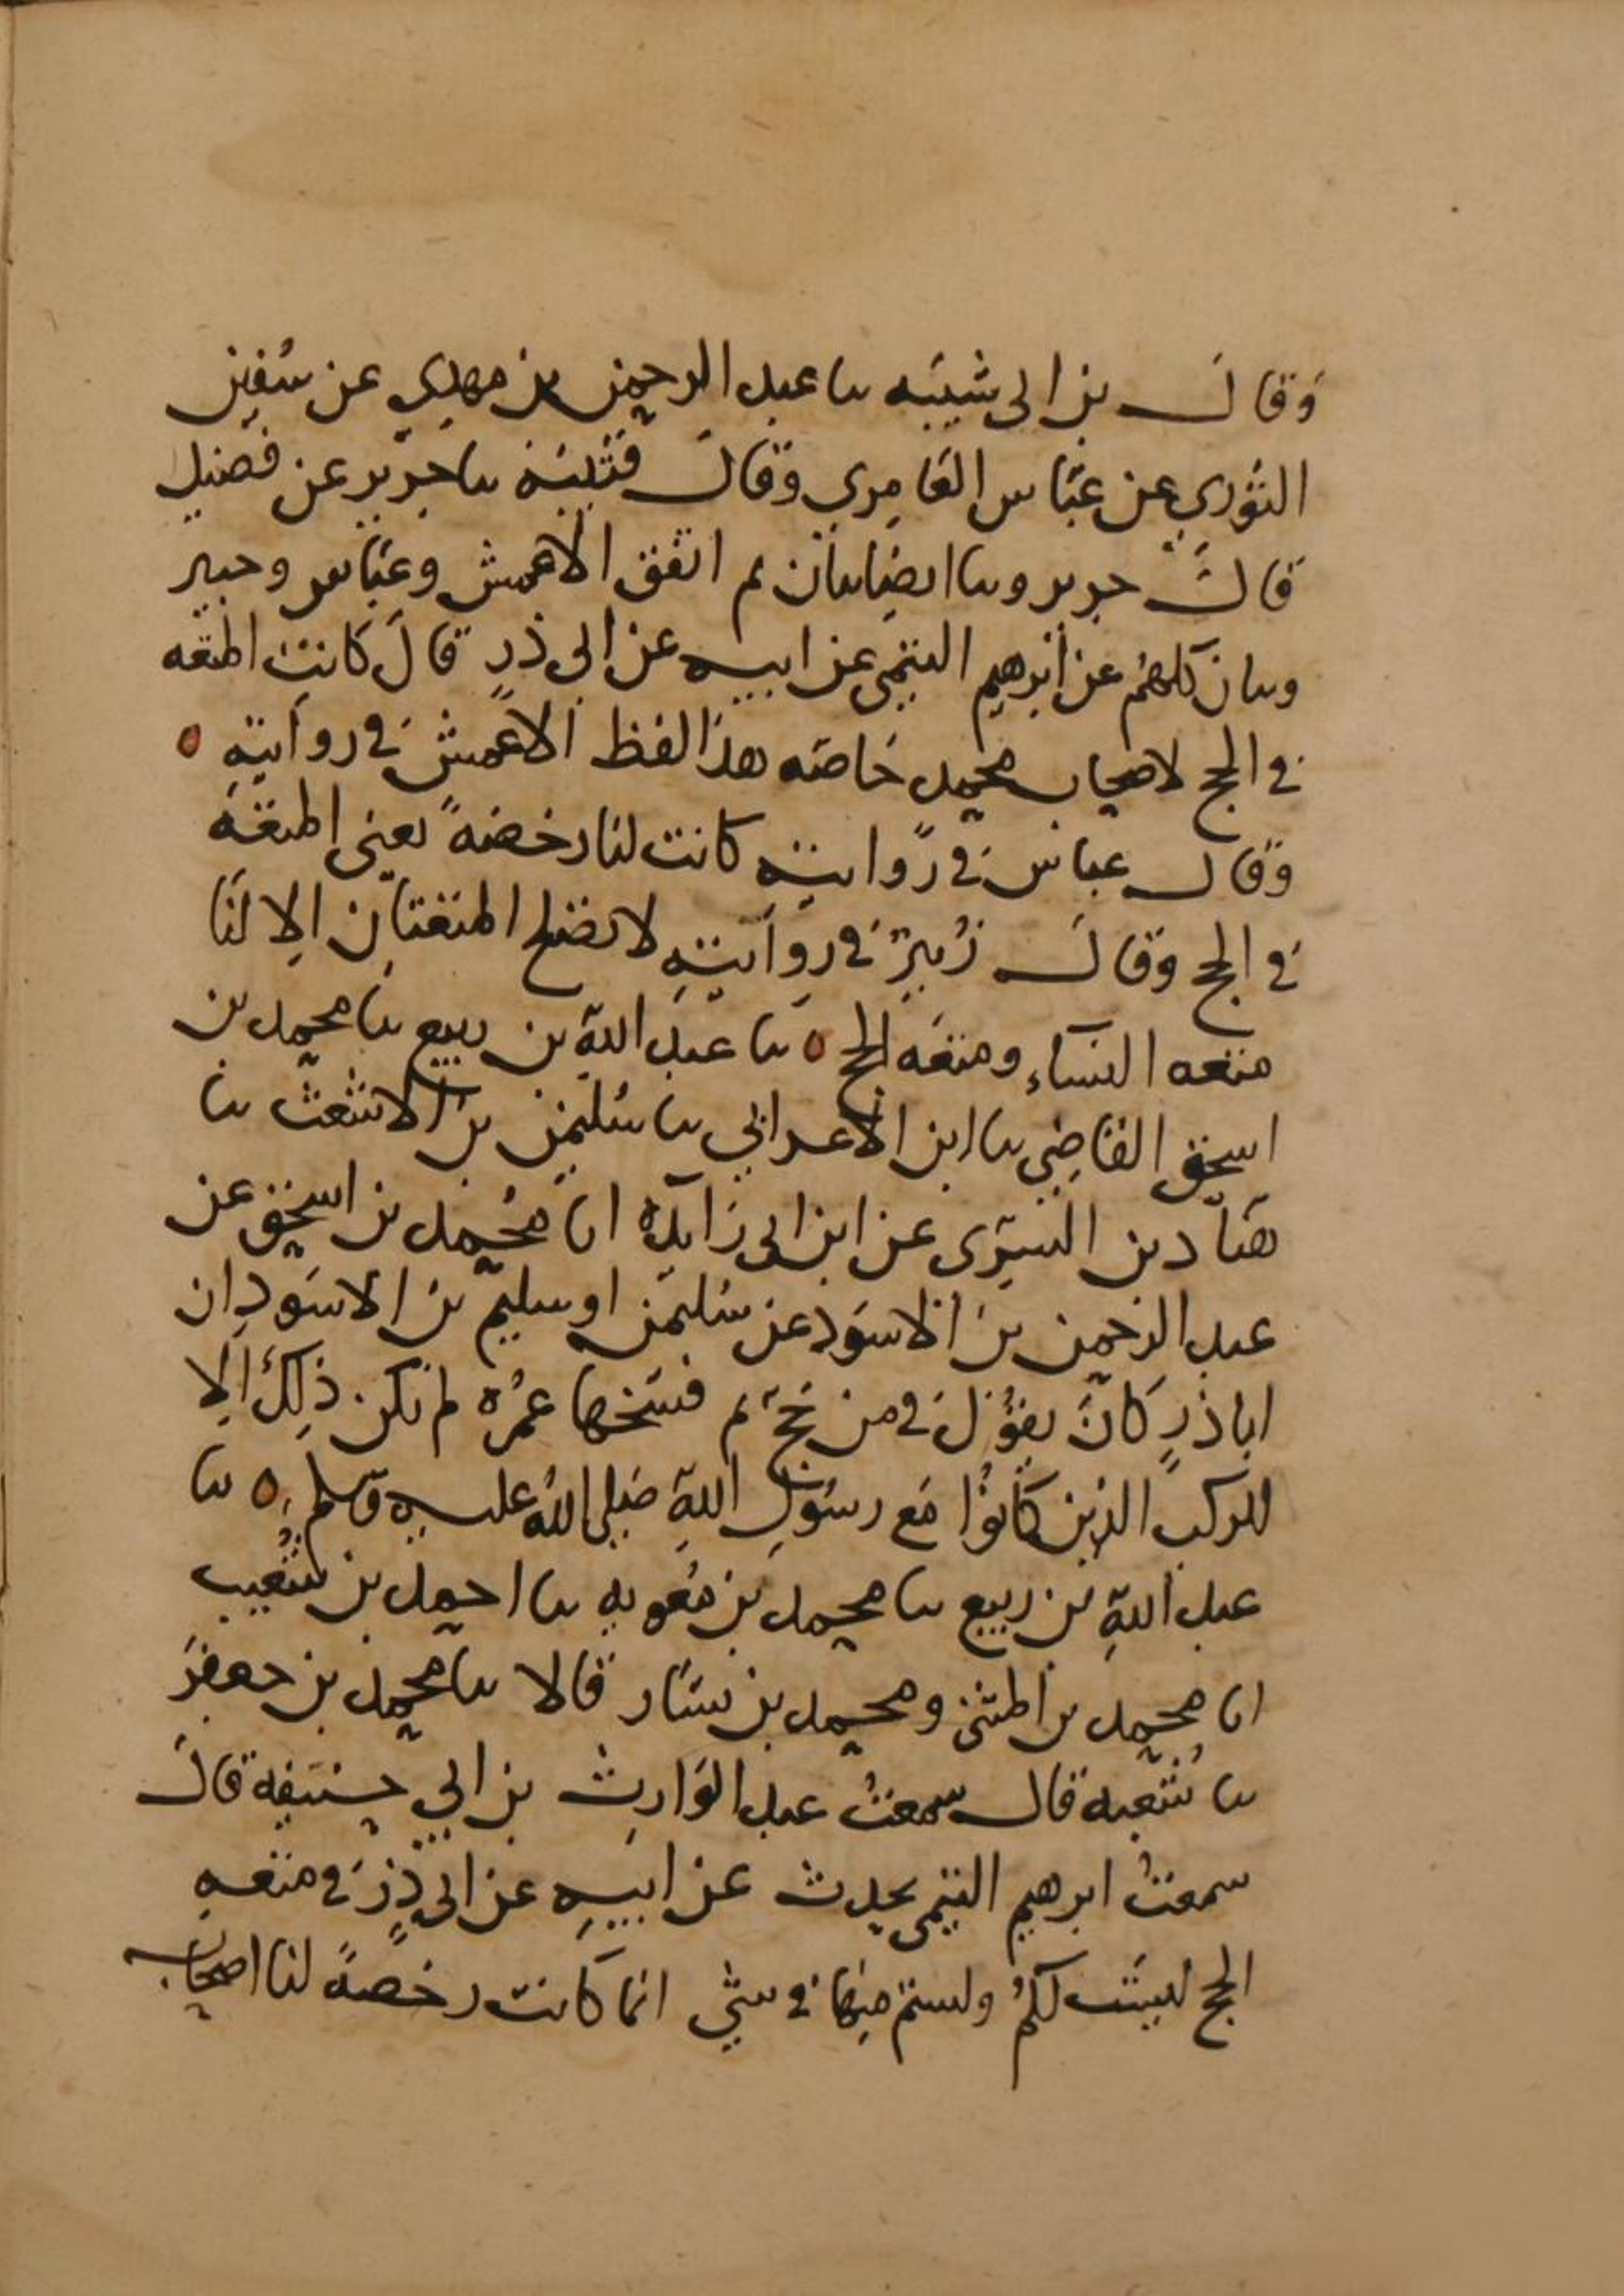 وقال بن ابى شيبه سا عبد الرحمن بن مهدي عن سفين
الثوري عن عباس العامري وقال قتيبة سا جرير عن فضيل
قال جرير وسا ايضا بيان ثم اتفق الاعمش وعياس وحبير
وبيان كلهم عن ابرهيم التيمي عن ابيه عن ابى ذر قال كانت المتعه
في الحج لاصحاب محمد خاصه هذا لفظ الاعمش في روايته ٥
وقال عباس في روايته كانت لنا رخصة يعني المتعة
في الحج وقال زبيد في روايته لا تصلح المتعتان الا لنا
متعه النساء ومتعه الحج ٥ سا عبد الله بن ربيع سا محمد بن
اسحق القاضي سا ابن الاعرابي سا سليمن بن الاشعث سا
هناد بن السرى عن ابن ابى زايده انا محمد بن اسحق عن
عبد الرحمن بن الاسود عن سليمن او سليم بن الاسود ان
ابا ذر كان يقول في من حج ثم فسخها عمره لم تكن ذلك الا
للركب الذين كانوا مع رسول الله صلى الله عليه وسلم ٥ سا
عبد الله بن ربيع سا محمد بن معويه سا احمد بن شعيب
انا محمد بن المثنى ومحمد بن بشار قالا سا محمد بن جعفر
سا شعبه قال سمعت عبد الوارث بن ابي حنيفه قال
سمعت ابرهيم التيمي يحدث عن ابيه عن ابى ذر في متعه
الحج ليست لكم ولستم منها في شي انما كانت رخصة لنا اصحاب